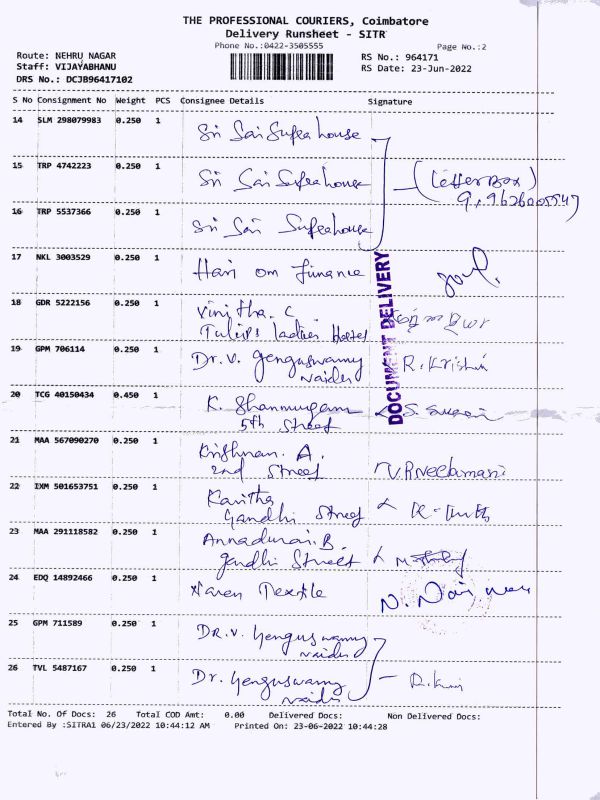 THE PROFESSIONAL COURIERS, Coimbatore
Delivery Runsheet - SITR
Phone No.:0422-3505555
Page No.:2
Route: NEHRU NAGAR
RS No.: 964171
Staff: VIJAYABHANU
RS Date: 23-Jun-2022
DRS No.: DCJB96417102
S No Consignment No Weight PCS Consignee Details Signature
14 SLM 298079983 0.250 1 Sri Sai Supra house
15 TRP 4742223 0.250 1 Sri Sai Supra house (Letter Box)
16 TRP 5537366 0.250 1 Sri Sai Supra house
17 NKL 3003529 0.250 1 Hari om finance
DOCUMENT DELIVERY
18 GDR 5222156 0.250 1 Vinitha. C
Tulips Ladies Hostel
19 GPM 706114 0.250 1 Dr. V. Yenguswamy R. Krishni
Naidu
20 TCG 40150434 0.450 1 K. Shanmugam
5th Street
21 MAA 567090270 0.250 1 Krishnan. A.
2nd Street V.P. Neelamani
22 IXM 501653751 0.250 1 Kavitha
Gandhi Street
23 MAA 291118582 0.250 1 Annadurai. B.
Gandhi Street
24 EDQ 14892466 0.250 1 Naren Textile
25 GPM 711589 0.250 1 DR. V. Yenguswamy
Naidu
26 TVL 5487167 0.250 1 Dr. Yenguswamy
Naidu
Total No. Of Docs: 26 Total COD Amt: 0.00 Delivered Docs: Non Delivered Docs:
Entered By :SITRA1 06/23/2022 10:44:12 AM Printed On: 23-06-2022 10:44:28